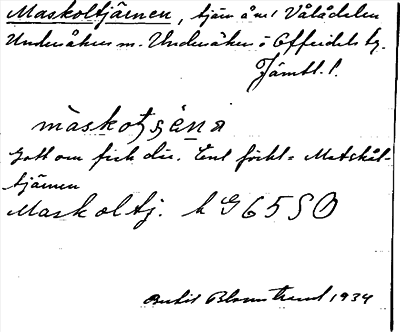 Maskoltjärnen, tjärn å nr 1 Vålådalen
Undersåkers sn. Undersåkers o Offerdals tg.
Jämtl. l.
màskotʂæ̀na
Gott om fisk där. Enl förkl = Matskål-
tjärnen
Maskoltj. k G 65 SO
Bertil Blomstrand 1934